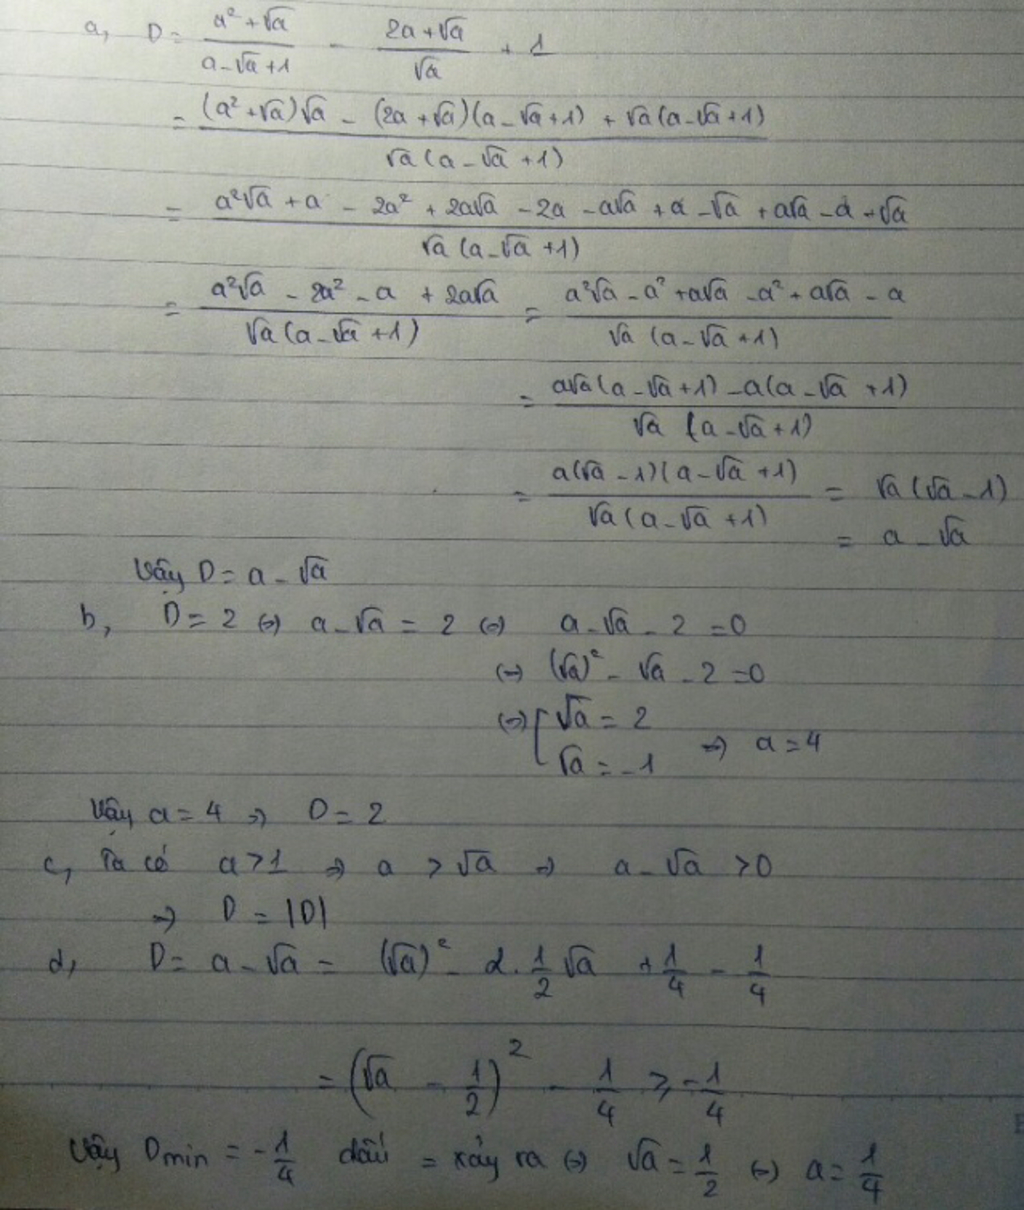 a, D = (a² + √a)/(a - √a + 1) - (2a + √a)/√a + 1
= ((a² + √a)√a - (2a + √a)(a - √a + 1) + √a(a - √a + 1))/(√a(a - √a + 1))
= (a²√a + a - 2a² + 2a√a - 2a - a√a + a - √a + a√a - a + √a)/(√a(a - √a + 1))
= (a²√a - 2a² - a + 2a√a)/(√a(a - √a + 1)) = (a²√a - a² + a√a - a² + a√a - a)/(√a(a - √a + 1))
= (a√a(a - √a + 1) - a(a - √a + 1))/(√a(a - √a + 1))
= (a(√a - 1)(a - √a + 1))/(√a(a - √a + 1)) = √a(√a - 1)
= a - √a
Vậy D = a - √a
b, D = 2 ⇔ a - √a = 2 ⇔ a - √a - 2 = 0
⇔ (√a)² - √a - 2 = 0
⇔ [ √a = 2
√a = -1 ⇒ a = 4
Vậy a = 4 ⇒ D = 2
c, Ta có a > 1 ⇒ a > √a ⇒ a - √a > 0
⇒ D = |D|
d, D = a - √a = (√a)² - 2.1/2 √a + 1/4 - 1/4
= (√a - 1/2)² - 1/4 ≥ -1/4
Vậy Dmin = -1/4 dấu = xảy ra ⇔ √a = 1/2 ⇔ a = 1/4